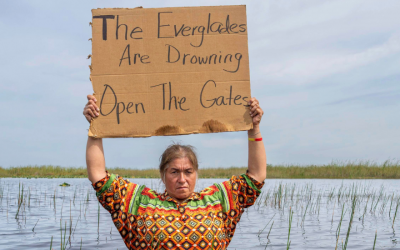 The Everglades
Are Drowning
Open The Gates